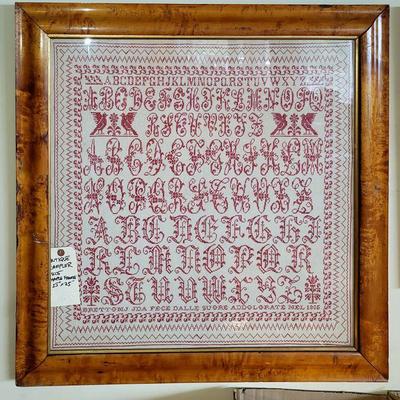 ABCDEFGHIJKLMNOPQRSTUVWXYZ
ABCDEFGHIJKLMNOPQ
RSTUVWXYZ
ABCDEFGHIJKLM
NOPQRSTUVWXYZ
ABCDEFGHI
KLMNOPQR
STUVWXYZ
BRETTOMJ JDA FECE DALLE SUORE ADDOLORATE NEL 1905
ANTIQUE
SAMPLER
MAPLE FRAME
25" x 25"